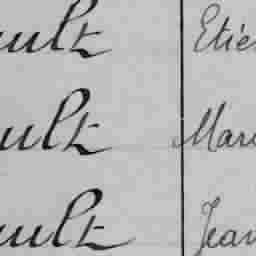 ult Etie
ult Mari
ult Jean